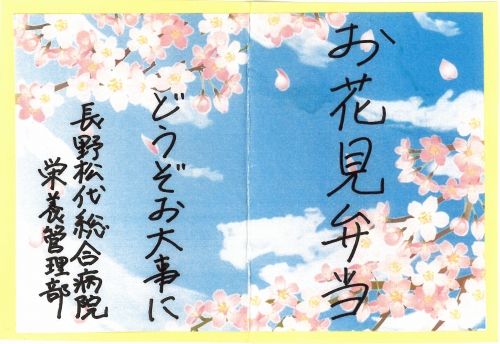 お花見弁当
どうぞお大事に
長野松代総合病院
栄養管理部